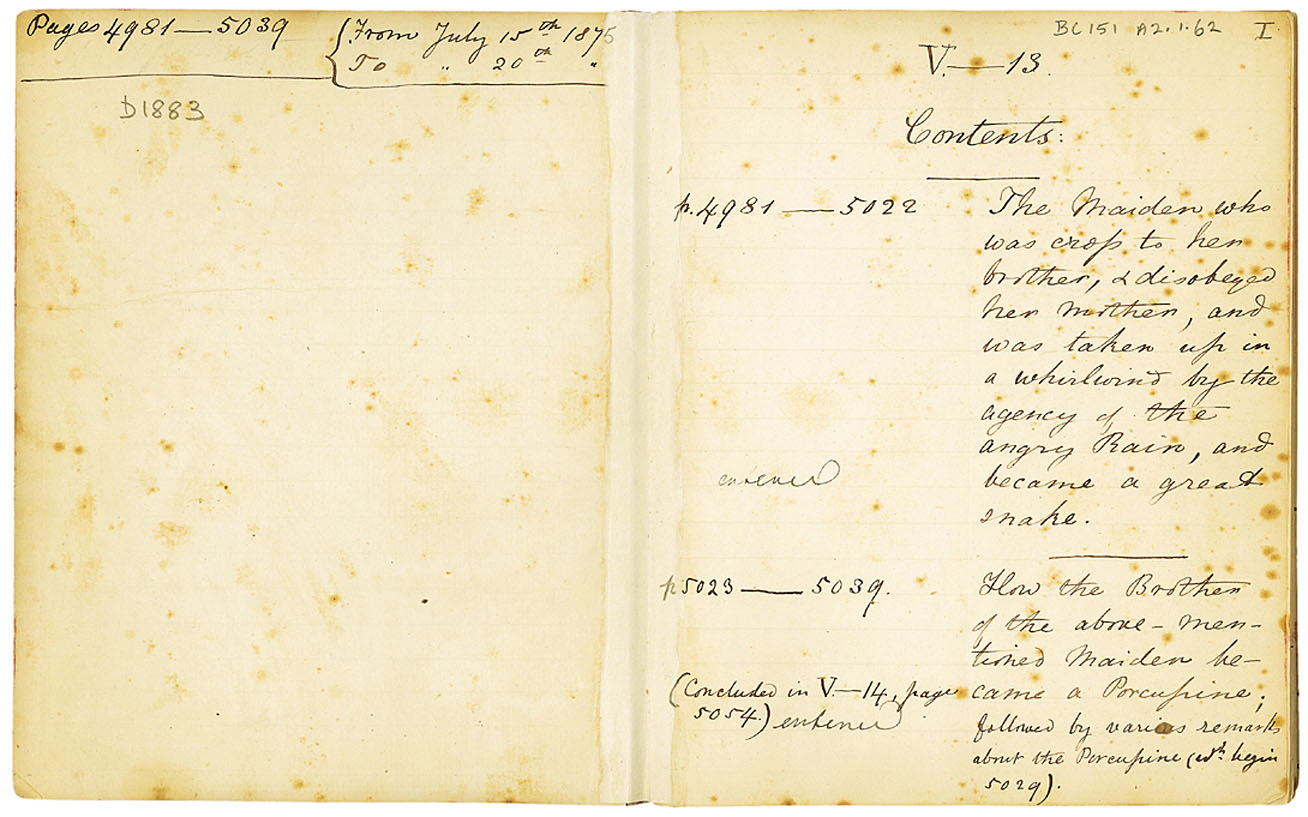 Pages 4981 — 5039
{From July 15th 1875
To " 20th "
D1883
BC151 A2.1.62 I
V.—13.
Contents:
p. 4981 — 5022
The Maiden who
was cross to her
brother, & disobeyed
her mother, and
was taken up in
a whirlwind by the
agency of the
angry Rain, and
became a great
snake.
entered
p 5023 — 5039.
How the Brother
of the above-men-
tioned Maiden be-
came a Porcupine;
followed by various remarks
about the Porcupine (wh. begin
5029).
(Concluded in V.—14, page
5054.) entered